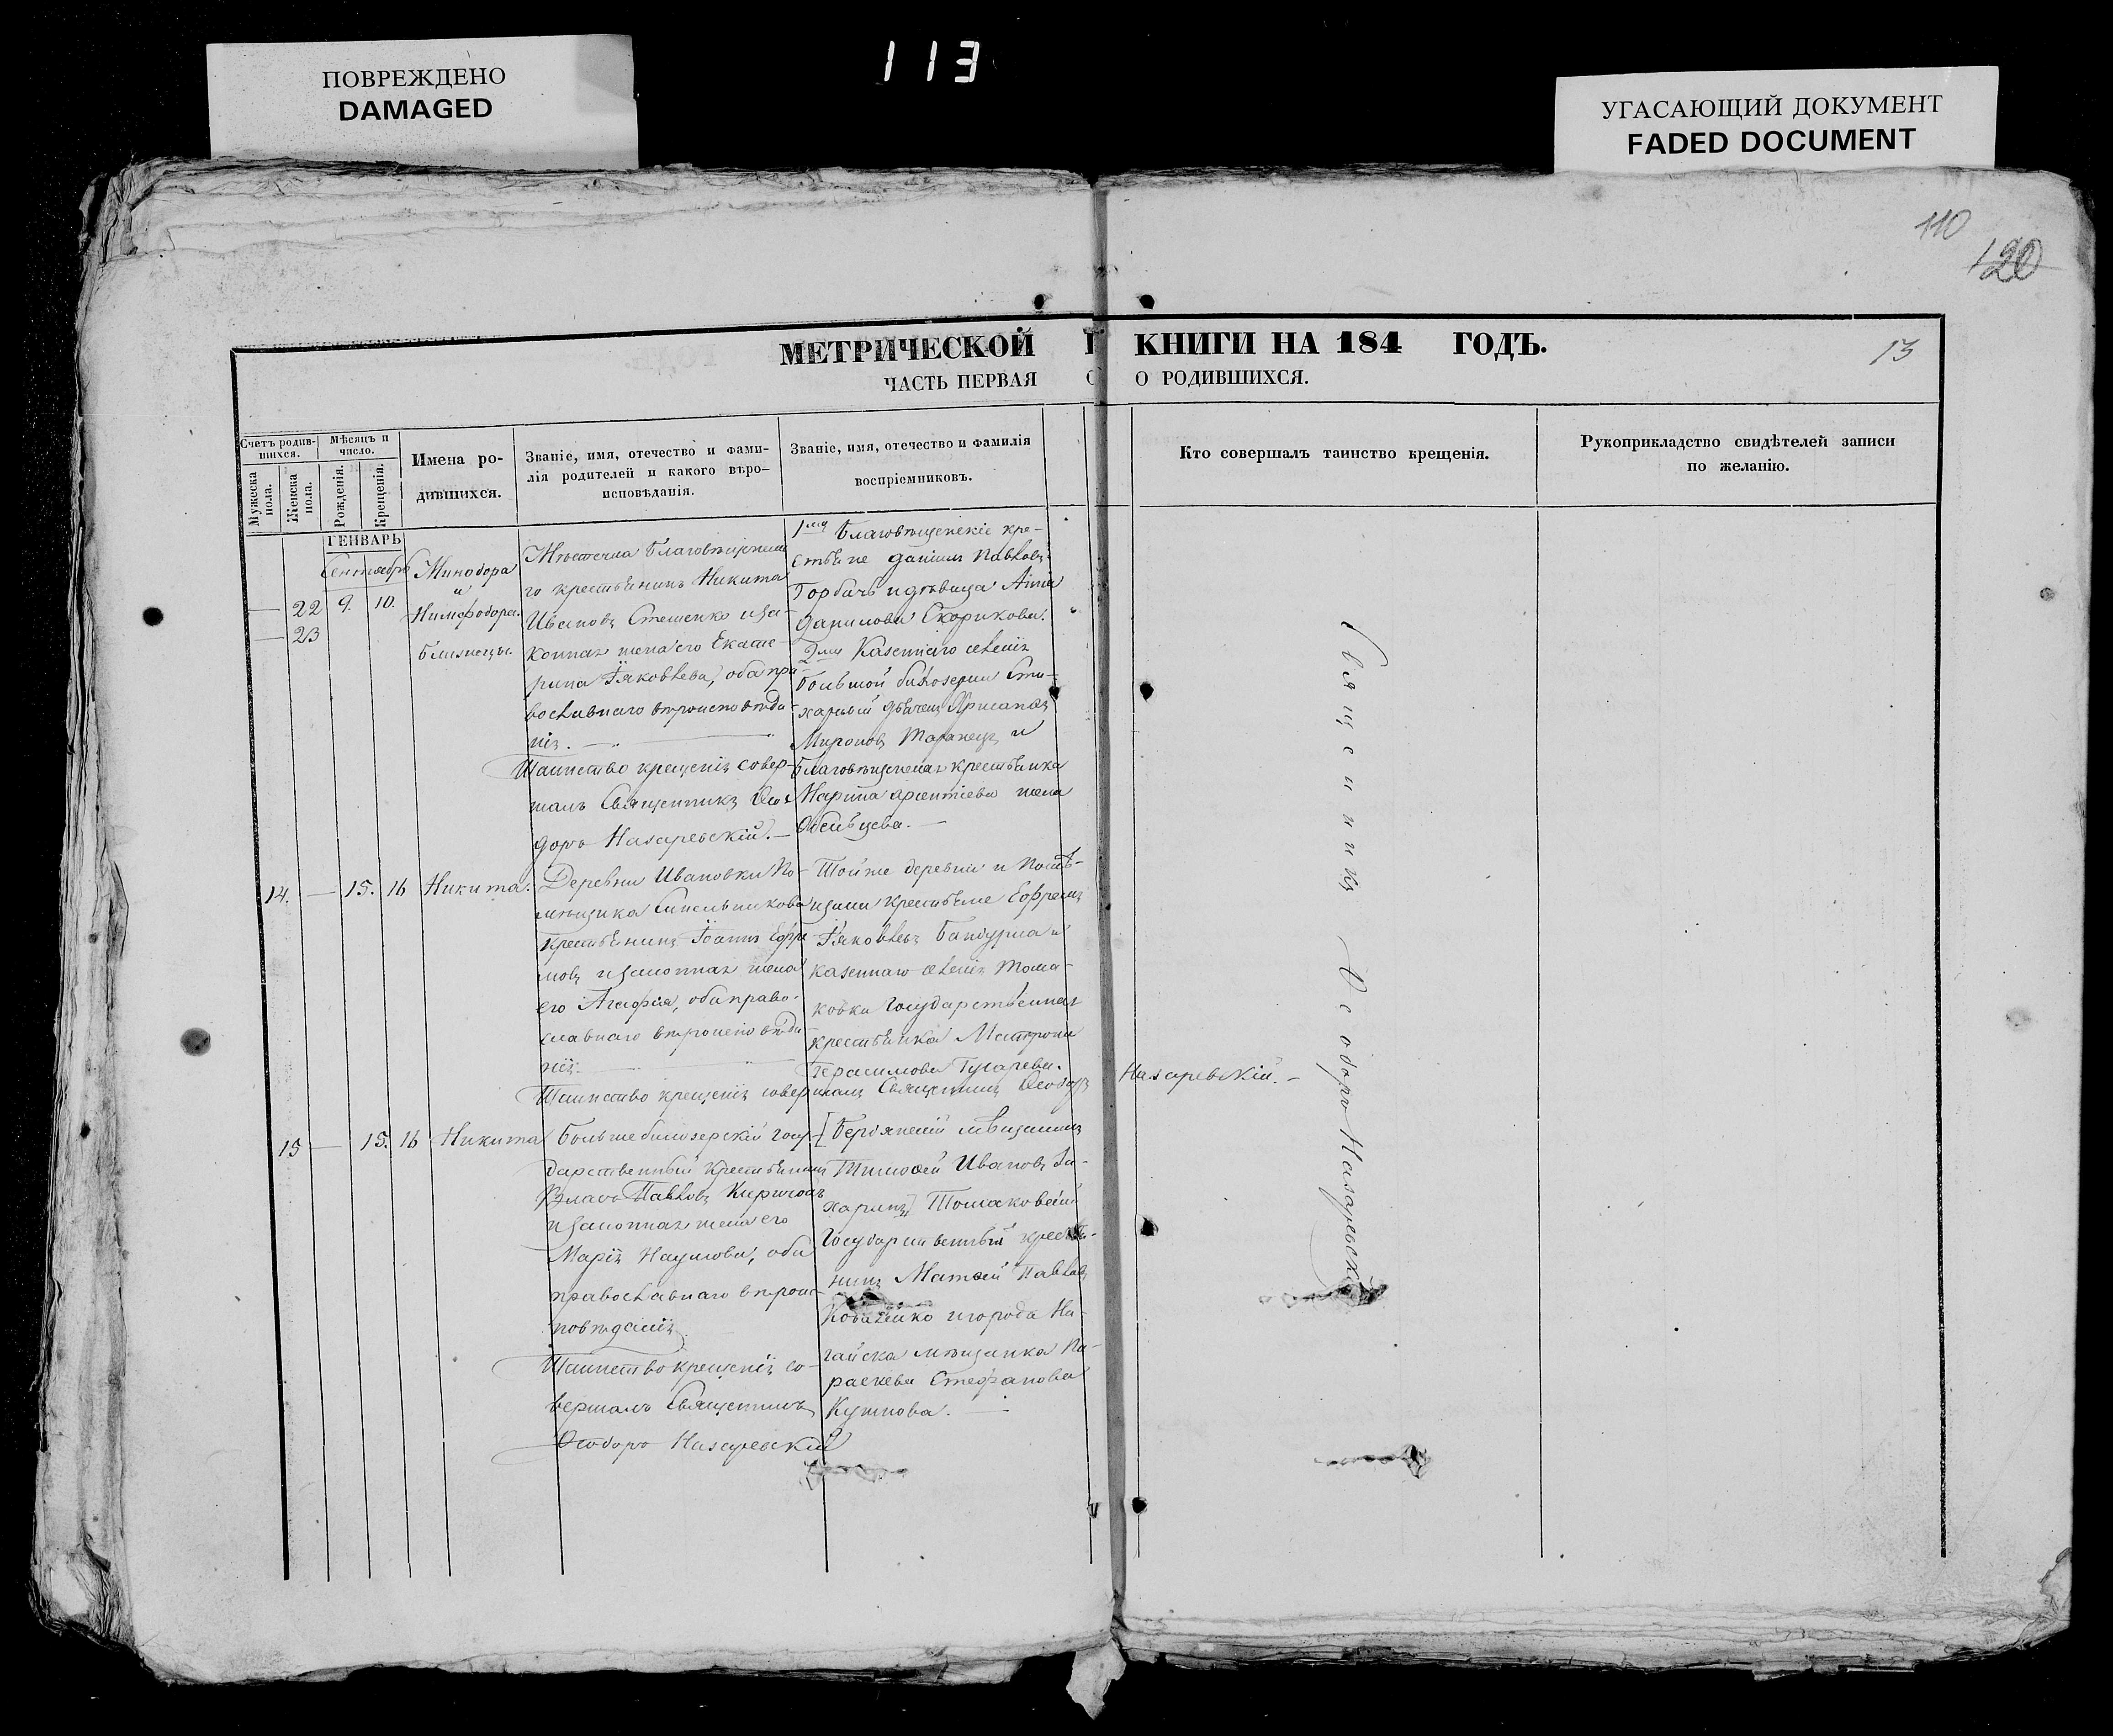 113
ПОВРЕЖДЕНО
DAMAGED
УГАСАЮЩИЙ ДОКУМЕНТ
FADED DOCUMENT
110
120
13
МЕТРИЧЕСКОЙ КНИГИ НА 184 ГОДЪ.
ЧАСТЬ ПЕРВАЯ О РОДИВШИХСЯ.
Счетъ родив-
шихся.
Мужеска
пола.
Женска
пола.
Мѣсяцъ и
число.
Рожденія.
Крещенія.
Имена ро-
дившихся.
Званіе, имя, отечество и фами-
лія родителей и какого вѣро-
исповѣданія.
Званіе, имя, отечество и фамилія
воспріемниковъ.
Кто совершалъ таинство крещенія.
Рукоприкладство свидѣтелей записи
по желанію.
ГЕНВАРЬ
Сентябрь
22
23
9.
10.
Минодора
и
Нимфодора.
близнецы.
Мѣстечка Благовѣщенска
го крестьянинъ Никита
Ивановъ Стешенко и за-
конная жена его Екате
рина Іяковлева, оба пра
вославнаго вѣроисповѣда
нія. —
Таинство крещенія совер-
шалъ Священникъ Ѳео
доръ Назаревскій. —
1 Благовѣщенскіе кре-
стьяне Даніилъ Павловъ
Горбачь и дѣвица Анна
Данилова Скорикова.
2 Казеннаго селенія
Большой бѣлозерки
Мироновъ Таранецъ и
Благовѣщенская крестьянка
Марина жена
14.
—
15.
16
Никита.
Деревни Ивановки По-
мѣщика Синельникова
крестьянинъ Іоаннъ Ефре
мовъ и законная жена
его Агафія, оба право-
славнаго вѣроисповѣда
нія.
Таинство крещенія совершалъ Священникъ Ѳеодоръ Назаревскій. —
Той же деревни и помѣ-
щика крестьяне Ефремъ
Іяковлевъ и
казеннаго селенія Тома-
ковки Государственная
крестьянка Матрона
Герасимова
15
—
15.
16
Никита
Большебѣлозерскій госу-
дарственный крестьянинъ
Власъ Павловъ
и законная жена его
Марія Наумова, оба
православнаго вѣроис-
повѣданія
Таинство крещенія со-
вершалъ Священникъ
Ѳеодоръ Назаревскій
[Бердянскій мѣщанинъ
Тимоѳей Ивановъ За-
харинъ] Томаковскій
Государственный крестья-
нинъ Матѳей Павловъ
и города На-
гайска мѣщанка Па-
раскева Стефанова
Священникъ Ѳеодоръ Назаревскій